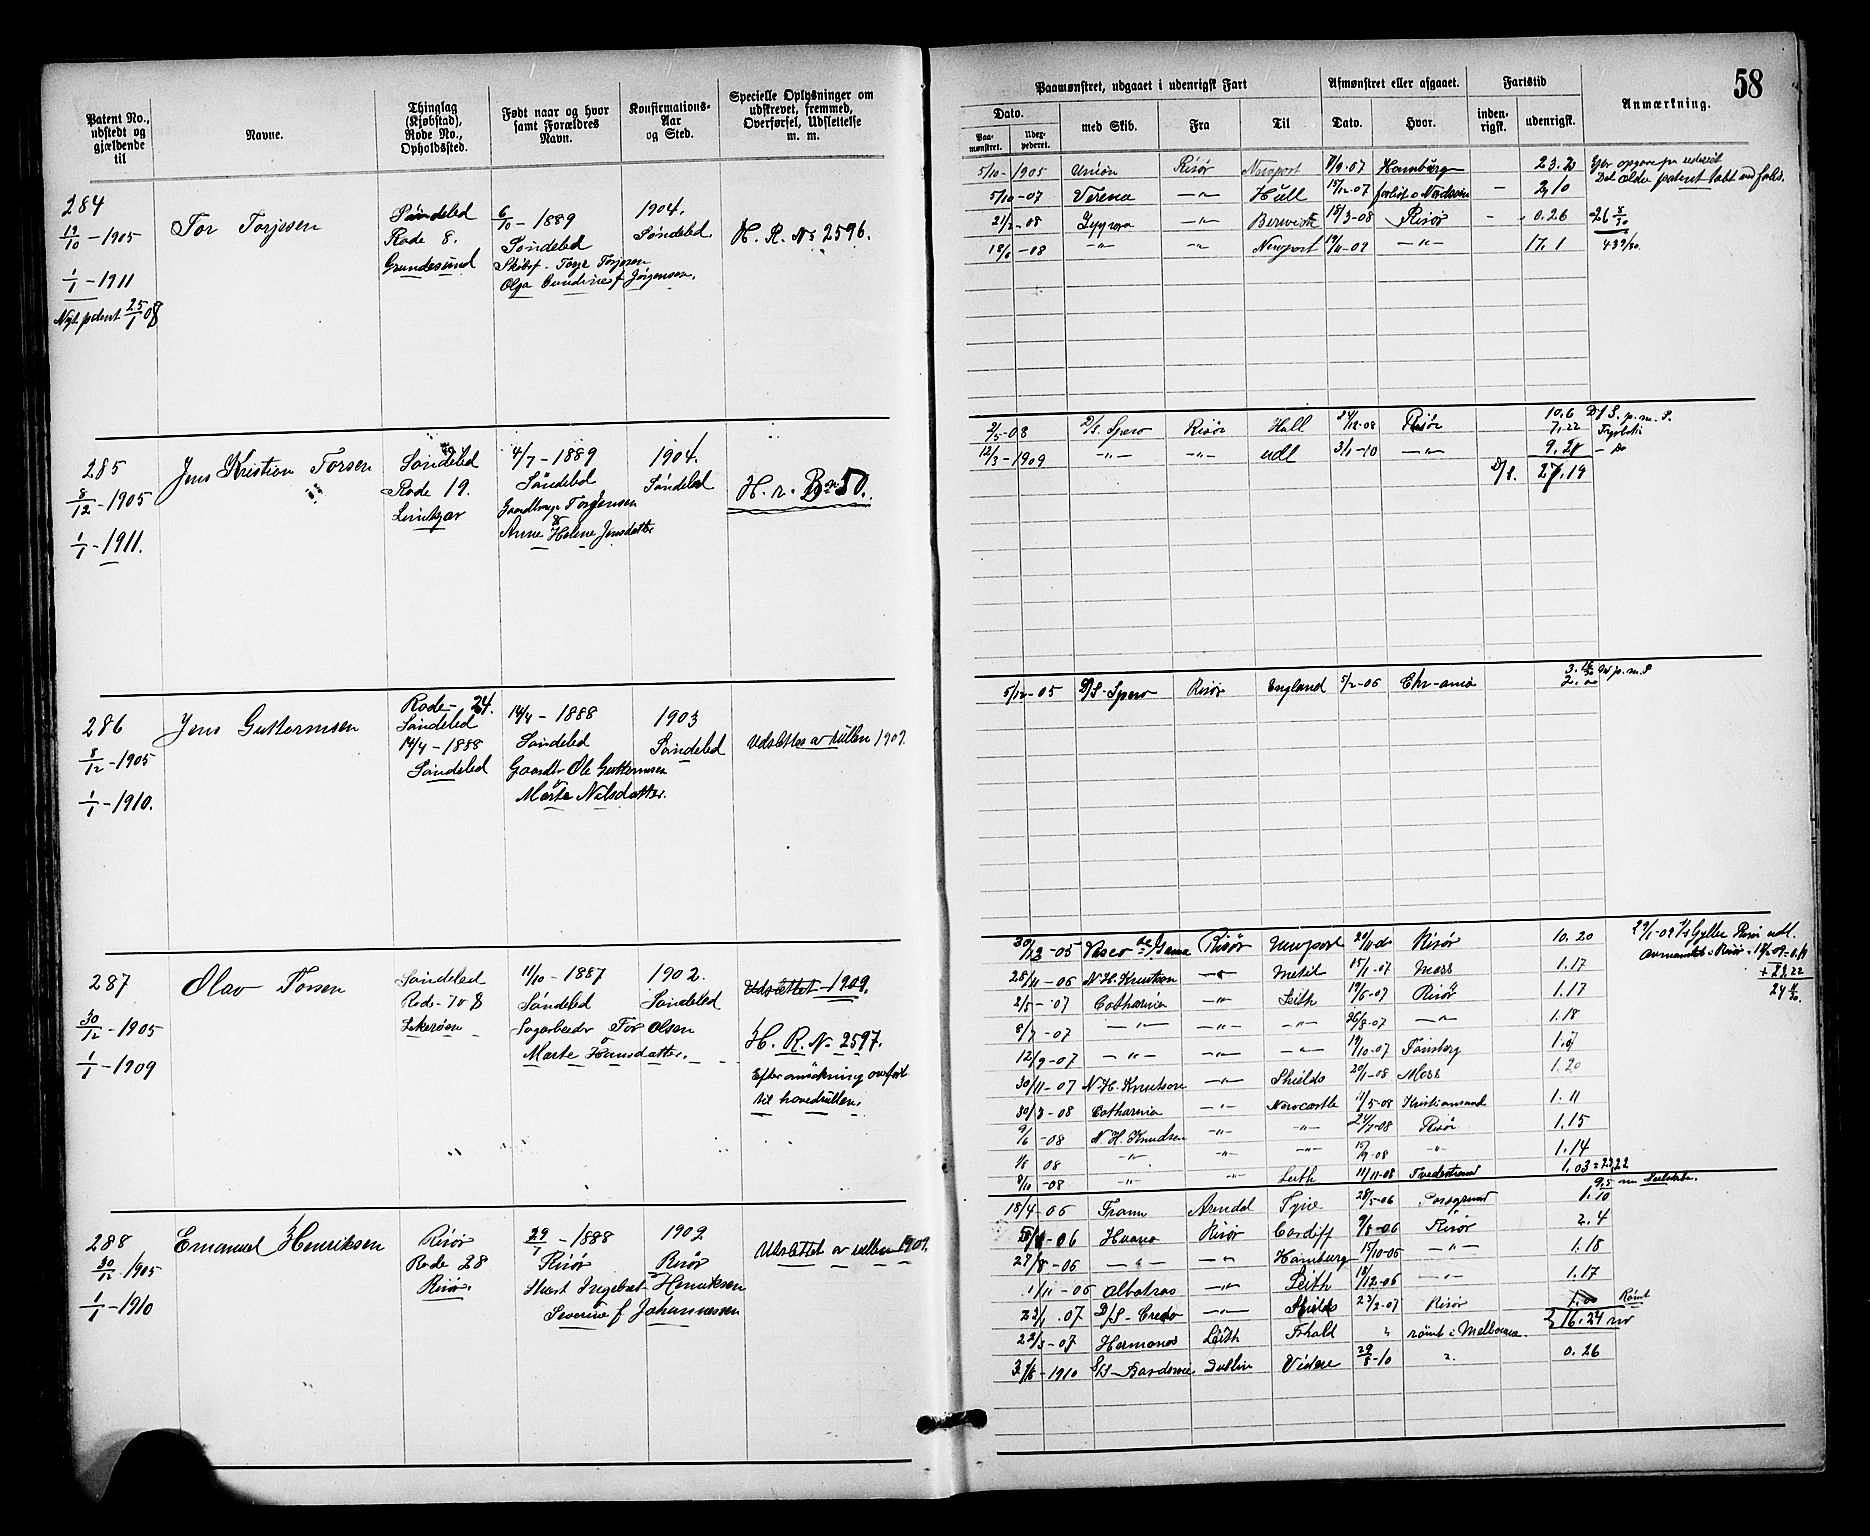 58
Patent No., udstedt og gjældende til
Navne.
Thinglag (Kjøbstad), Rode No., Opholdssted.
Født naar og hvor samt Forældres Navn.
Konfirmations-Aar og Sted.
Specielle Oplysninger om udskrevet, fremmed, Overførsel, Udslettelse m. m.
Paamønstret, udgaaet i udenrigsk Fart
Afmønstret eller afgaaet.
Fartstid
Anmærkning.
Dato.
Paamønstret.
Udexpederet.
med Skib.
Fra
Til
Dato.
Hvor.
indenrigsk.
udenrigsk.
284
19/10 - 1905
1/1 - 1911
Nyt patent 25/1 08
Tor Torjesen
Søndeled
Rode 8.
Grundesund
6/10 - 1889
Søndeled
Skibsf. Torje Torjesen
Olga Gundine f Jørgensen.
1904.
Søndeled.
H. R. No 2596.
5/10 - 1905 Union Risør Newport 7/9-07 Hamburg 23.2
5/10 - 07 Verena -"- Hull 15/12-07 forlist o Nordsøen - 2,10
21/2 - 08 -"- Berwick 18/3-08 Risør - 0.26
18/6 - 08 -"- -"- Newport 19/11-09 -"- 17.1
285
8/12 - 1905
1/1 - 1911.
Jens Kristian Torsen
Søndeled
Rode 19.
4/7 - 1889
Søndeled
Torjensen
Anne Helene Jensdatter
1904.
Søndeled
H. r. B. 50.
2/5-08 D/S. Spero Risør Hull 24/12-08 Risør 10.6 D/S. p. m. P.
7.22
12/3-1909 -"- -"- udl 3/1-10 -"- 9.28 - Do
D/S. 27.19
286
8/12 - 1905
1/1 - 1910.
Jens Guttormsen
Rode - 24.
Søndeled
14/4 - 1888
Søndeled
14/4 - 1888
Søndeled
Gaardbr Ole Guttormsen
Marte Nilsdatter.
1903
Søndeled
Udslettes av rullen 1909.
5/12-05 D/S-Spero Risør England 5/2-06 Chr-ania 2.00
287
30/12 - 1905
1/1 - 1909
Olav Torsen
Søndeled
Rode - 7 o 8
Lekerøen
11/10 - 1887
Søndeled
Sagarbeider Tor Olsen
Marte Hansdatter.
1902.
Søndeled
Udslettet 1909.
H. R. No 2597.
Efter ansøkning overført
til hovedrullen.
30/12-05 Vasco de Gama Risør Newport 20/11 do Risør 10.20
28/11-06 N. H. Knutson -"- Metil 15/1-07 Moss 1.17
2/5-07 Catharina -"- Leith 19/6-07 Risør 1.17
8/7-07 -"- -"- -"- 26/8-07 -"- 1.18
12/9-07 -"- -"- -"- 19/10-07 Tønsberg 1.7
30/11-07 N. H. Knutson -"- Shields 20/1-08 Moss 1.20
30/3-08 Catharina -"- Newcastle 11/5-08 Kristiansund 1.11
9/6-08 N. H. Knudsen -"- -"- 24/7-08 Risør 1.15
1/8 08 -"- -"- -"- 15/9-08 -"- 1.14
8/10-08 -"- -"- Leith 11/11-08 Tvedestrand 1.03 = 23,22
+ 23.22
288
30/12 - 1905
1/1 - 1910
Emanuel Henriksen
Risør
Rode 28
Risør.
29/7 - 1888
Risør
Stuert Ingebret Henriksen
Severine f Johannessen
1902
Risør
Udslettet av rullen 1909.
18/4-06 Fram Arendal Tyne 28/5-06 Porsgrund 1.10
-06 Huano Risør Cardiff 9/8-06 Risør 2.4
27/8-06 -"- -"- Hamburg 15/10-06 -"- 1.18
1/11-06 Albatros -"- Leith 18/12-06 -"- 1.17
23/1.07 D/S-Credo -"- Shields 23/2-07 Risør 1.00 Rømt
22/3-07 Hermanos Leith " rømt i Melbourne. 16.24
-1910 Dublin Videre 29/8-10 " 0.26